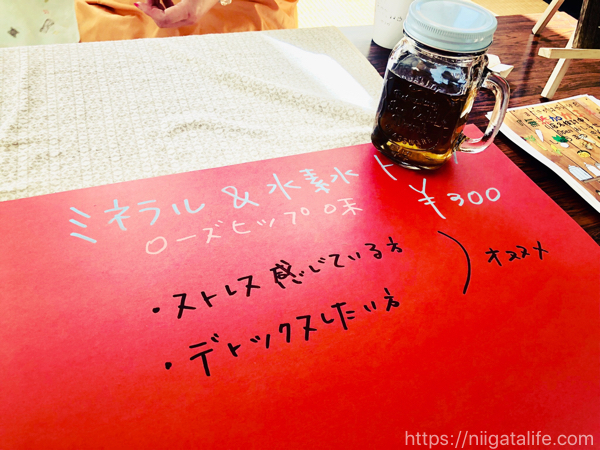 ミネラル & 水素水
¥300
ローズヒップ味
・ストレス感じている方
・デトックスしたい方
オススメ
https://niigatalife.com